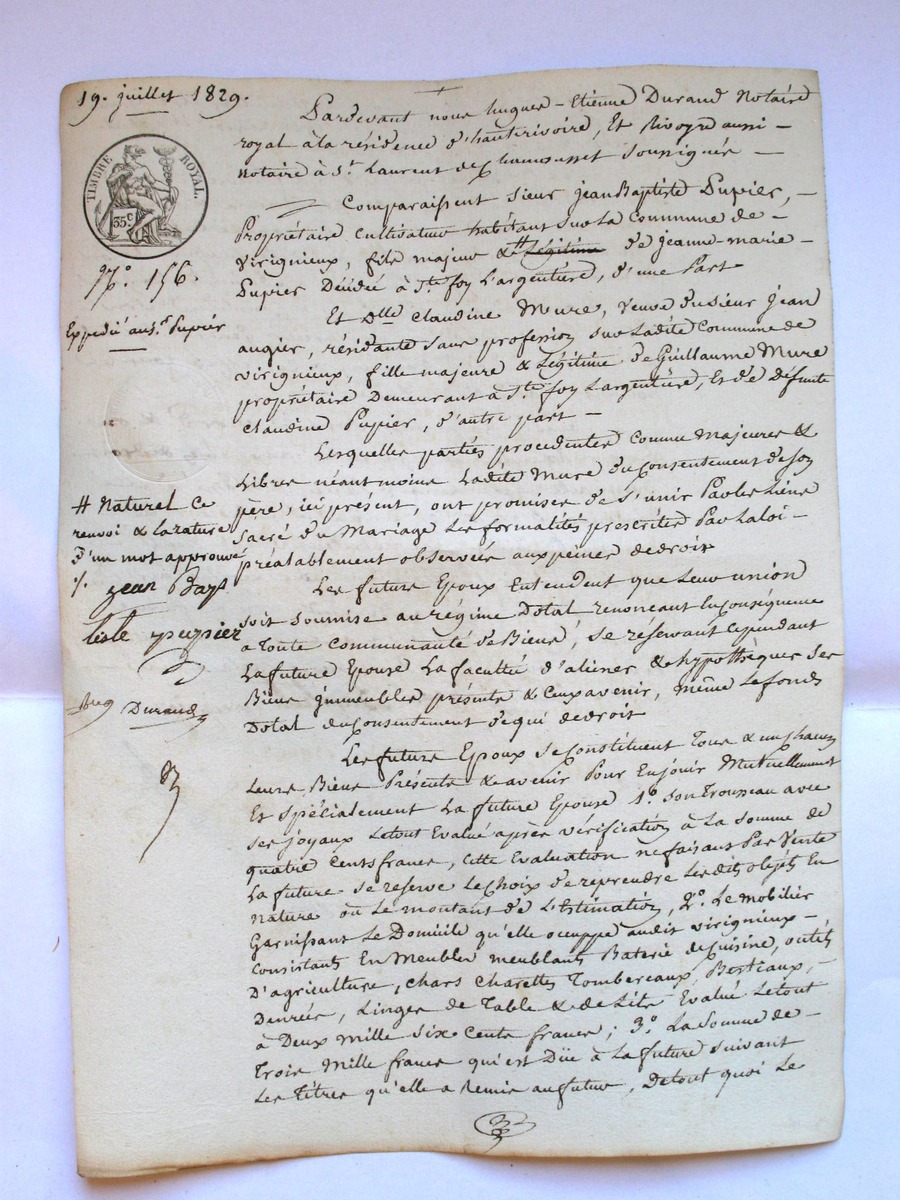 19. juillet 1829.
TIMBRE ROYAL.
35 c
N.° 156.
Expédié au s.r Pupier
# Naturel Ce
renvoi & la rature
d'un mot approuvé
./. jean Baps
tiste pupier
Durand
Pardevant nous hugues-Etienne Durand Notaire
royal à la résidence d'hauterivoire, Et Rivoyre aussi -
Notaire à S.t Laurent de Chamousset Soussignés -
Comparaissent Sieur jean Baptiste Pupier, -
Propriétaire Cultivateur habitant sur la Commune de -
virignieux, fils majeur & # Légitime de jeanne-marie -
Pupier Décédée à S.te foy L'argentière, d'une Part
Et D.lle Claudine Mure, veuve du sieur jean
augier, résidante sans profession sur ladite Commune de
virignieux, fille majeure & Légitime de Guillaume Mure
propriétaire Demeurant à S.te foy Largentière, Et de Défunte
Claudine Pupier, d'autre part -
Lesquelles parties procédantes Comme Majeures &
Libres néantmoins Ladite Mure du Consentement de son
père, ici présent, ont promises de s'unir Par les Liens
sacré du Mariage Les formalités prescrites Par La loi -
préalablement observées aux peines de droit
Les futurs Epoux Entendent que Leur union
soit soumise au régime Dotal renonçant En Conséquence
a Toute Communauté de Biens, se réservant Cependant
La future Epouse La faculté d'aliéner & hypothéquer ses
Biens immeubles présents & Ceux avenir, même Le fonds
Dotal du Consentement de qui de droit
Les futurs Epoux se Constituent Tous & un chacun
Leurs Biens Présents & avenir Pour En jouir Mutuellement
Et spécialement La future Epouse 1.° son Trousseau avec
ses joyaux Le tout Evalué après vérification à La somme de
quatre Cents francs, Cette Evaluation ne faisant Pas Vente
La future se réserve Le Choix de reprendre Lesdits objets En
Nature ou Le montant de L'Estimation, 2.° Le mobilier
Garnissant Le Domicile qu'elle occuppe audit virignieux -
Consistants En Meubles meublants Baterie de Cuisine, outils
D'agriculture, Chars Charettes Tombereaux, Bestiaux, -
Denrées, Linges de Table & de Lits Evalué Le tout
à Deux Mille six Cents francs; 3.° La Somme de -
Trois Mille francs qu'est Düe à La future suivant
Les Titres qu'elle a Remis au futur, De tout quoi Le